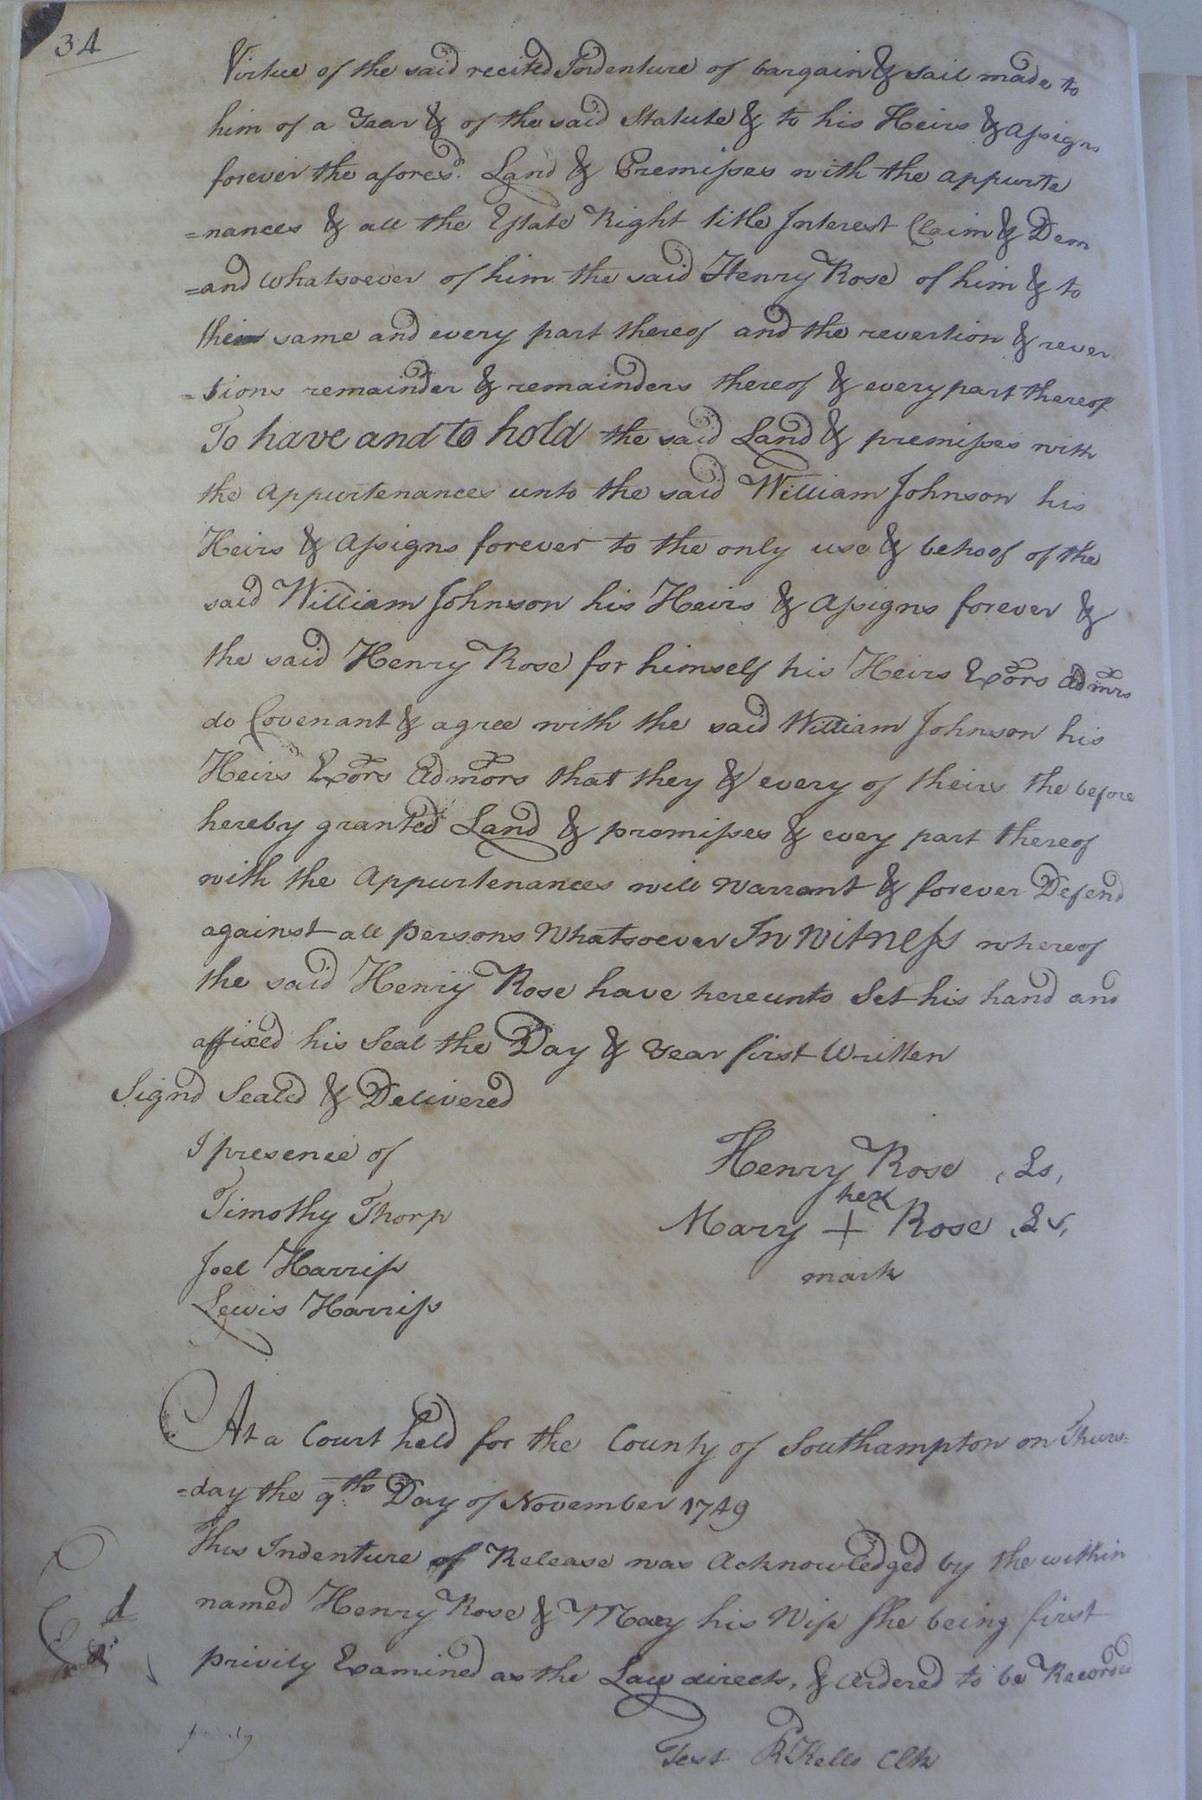 34
Virtue of the said recited Indenture of bargain & sail made to
him of a Year & of the said Statute & to his Heirs & Assigns
forever the afores.d Land & Premisses with the appurte
=nances & all the Estate Right title Interest Claim & Dem
=and whatsoever of him the said Henry Rose of him & to
their same and every part thereof and the revertion & rever
=tions remainder & remainders thereof & every part thereof
To have and to hold the said Land & premisses with
the Appurtenances unto the said William Johnson his
Heirs & Assigns forever to the only use & behoof of the
said William Johnson his Heirs & Assigns forever &
the said Henry Rose for himself his Heirs Exors Admrs
do Covenant & agree with the said William Johnson his
Heirs Exors Admors that they & every of theirs the before
hereby granted Land & premisses & evey part thereof
with the Appurtenances will Warrant & forever Defend
against all persons Whatsoever In Witness whereof
the said Henry Rose have hereunto Set his hand and
affixed his Seal the Day & Year first Written
Signd Seald & Delivered
I presence of
Henry Rose Ls,
Timothy Thorp
her
Mary + Rose Ls,
mark
Joel Harriss
Lewis Harriss
At a Court held for the County of Southampton on Thurs=
=day the 9.th Day of November 1749
This Indenture of Release was Acknowledged by the within
named Henry Rose & Mary his Wife She being first
privily Examined as the Law directs, & Ordered to be Recorded
Test R Kello Clk